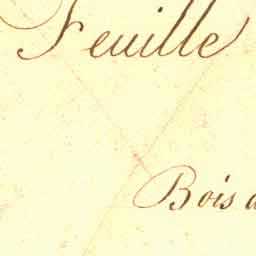 Feuille
Bois d